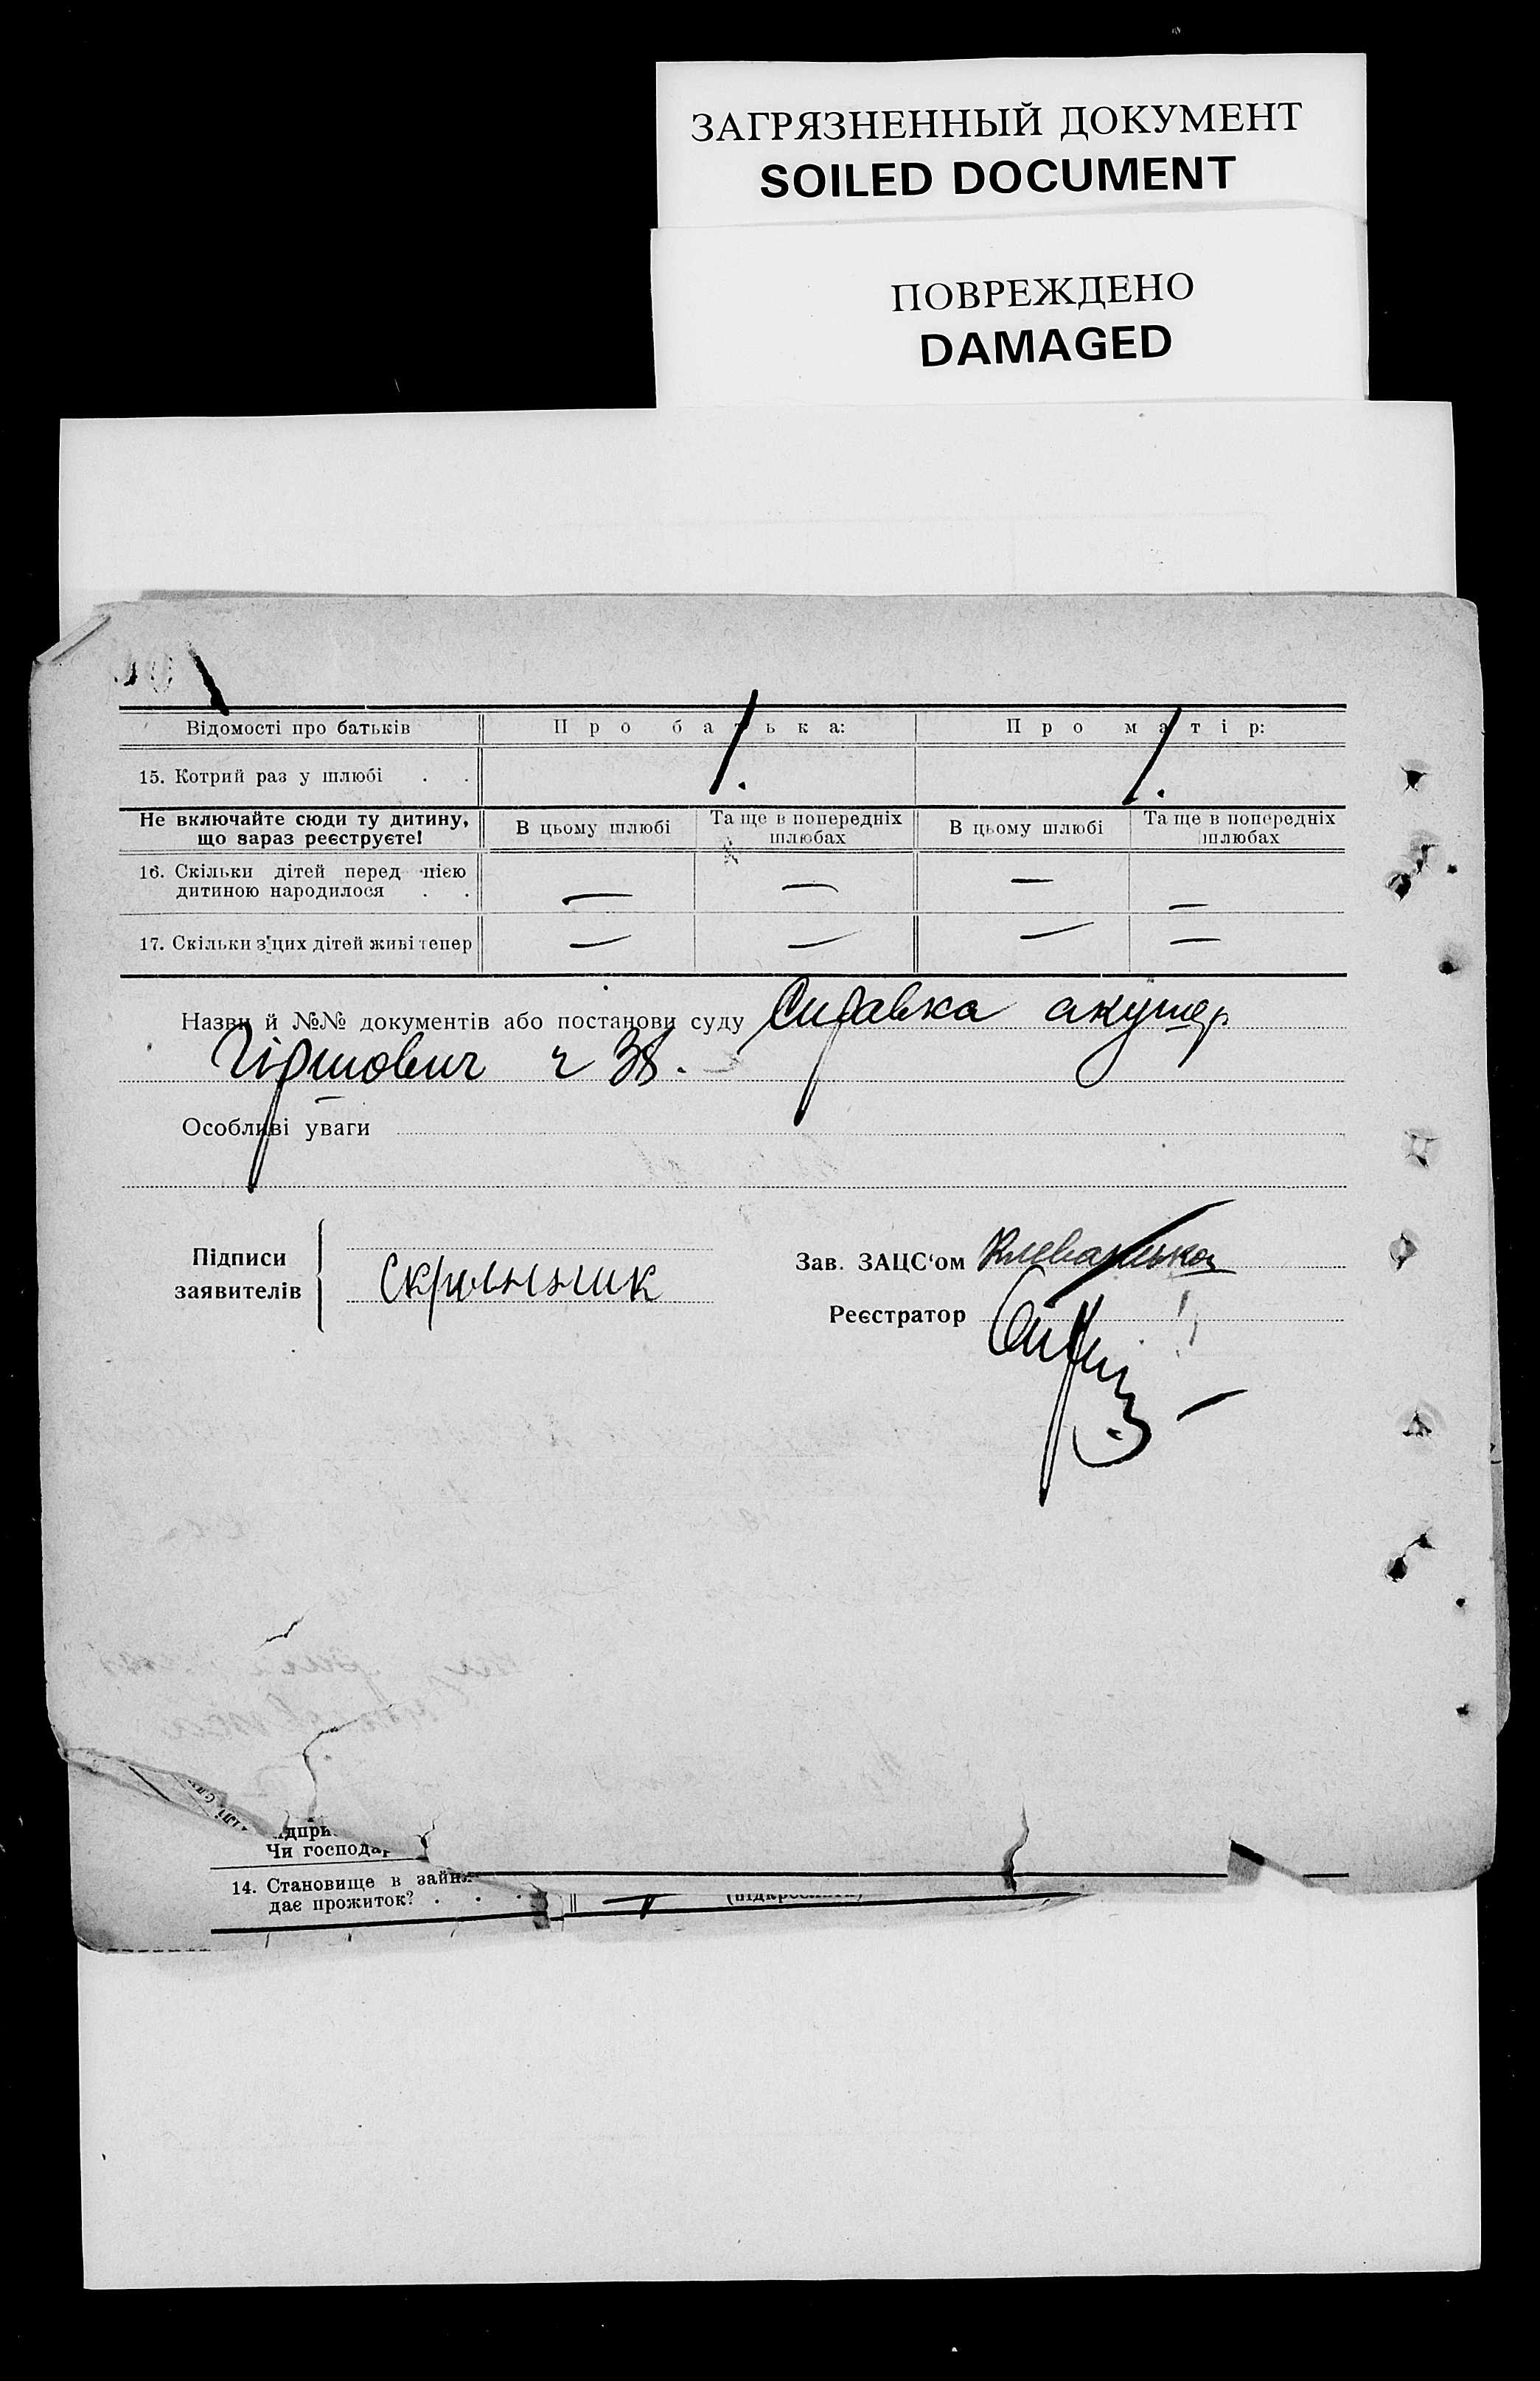 ЗАГРЯЗНЕННЫЙ ДОКУМЕНТ
SOILED DOCUMENT
ПОВРЕЖДЕНО
DAMAGED
Відомості про батьків Про батька: Про матір:
15. Котрий раз у шлюбі . . 1. 1.
Не включайте сюди ту дитину, що зараз реєструєте! В цьому шлюбі Та ще в попередніх шлюбах В цьому шлюбі Та ще в попередніх шлюбах
16. Скільки дітей перед цією дитиною народилося . . — — — —
17. Скільки з цих дітей живі тепер — — — —
Назви й №№ документів або постанови суду Справка акушер
Гіршович ч 38.
Особливі уваги
Підписи заявителів
Скрынник
Зав. ЗАЦС'ом
Реєстратор
Чи господар
14. Становище в
дає прожиток? . . . —
(підкреслити)